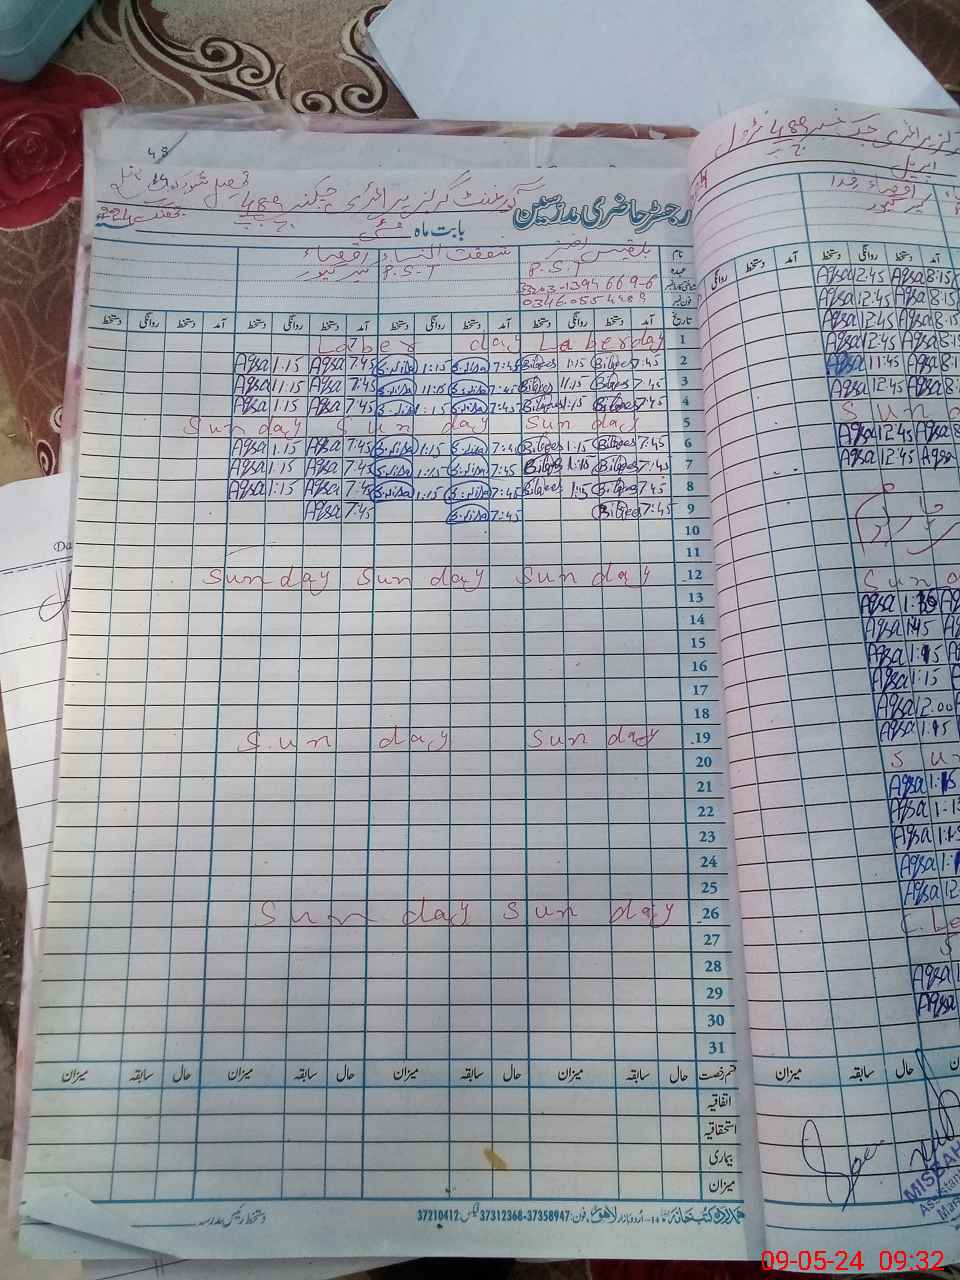 48
رجسٹر حاضری مدرسین
گورنمنٹ گرلز پرائمری چک نمبر 489 ج ب
بابت ماہ مئی
نام بلقیس اختر شفقت النساء اقصاء
عہدہ P.S.T P.S.T کیئر ٹیکر
0346.055 4489
تاریخ آمد دستخط روانگی دستخط آمد دستخط روانگی دستخط آمد دستخط روانگی دستخط آمد دستخط روانگی دستخط
1 Laber day Laber day
2 7:45 Bilqees 1:15 Bilqees 7:45 S.nisa 1:15 S.nisa 7:45 Aqsa 1:15 Aqsa
3 7:45 Bilqees 11:15 Bilqees 7:45 S.nisa 11:15 S.nisa 7:45 Aqsa 11:15 Aqsa
4 7:45 Bilqees 1:15 Bilqees 7:45 S.nisa 1:15 S.nisa 7:45 Aqsa 1:15 Aqsa
5 Sunday Sunday Sunday
6 7:45 Bilqees 1:15 Bilqees 7:45 S.nisa 1:15 S.nisa 7:45 Aqsa 1:15 Aqsa
7 7:45 Bilqees 1:15 Bilqees 7:45 S.nisa 1:15 S.nisa 7:45 Aqsa 1:15 Aqsa
8 7:45 Bilqees 1:15 Bilqees 7:45 S.nisa 1:15 S.nisa 7:45 Aqsa 1:15 Aqsa
9 7:45 Bilqees 7:45 S.nisa 7:45 Aqsa
10
11
12 Sunday Sunday Sunday
13
14
15
16
17
18
19 Sunday Sunday
20
21
22
23
24
25
26 Sunday Sunday
27
28
29
30
31
قسم رخصت حال سابقہ میزان حال سابقہ میزان حال سابقہ میزان حال سابقہ میزان
اتفاقیہ
استحقاقیہ
بیماری
میزان
دستخط رئیس مدرسہ
اُردو بازار لاہور، فون: 37358947-37312368 فیکس: 37210412
489
اپریل
آمد دستخط روانگی دستخط
8:15 Aqsa 12:45 Aqsa
8:15 Aqsa 12:45 Aqsa
8:15 Aqsa 12:45 Aqsa
8:15 Aqsa 12:45 Aqsa
8:15 Aqsa 11:45 Aqsa
8:15 Aqsa 12:45 Aqsa
Sun
Aqsa 12:45
Aqsa 12:45 Aqsa
Sun
Aqsa
Aqsa 1:45
Aqsa 1:15
Aqsa 1:15
Aqsa 12.00
Aqsa 1:15
Sun
Aqsa 1:15
Aqsa
Aqsa
Aqsa
Aqsa 12
Aqsa
Aqsa
حال سابقہ میزان
MISBAH
09-05-24 09:32